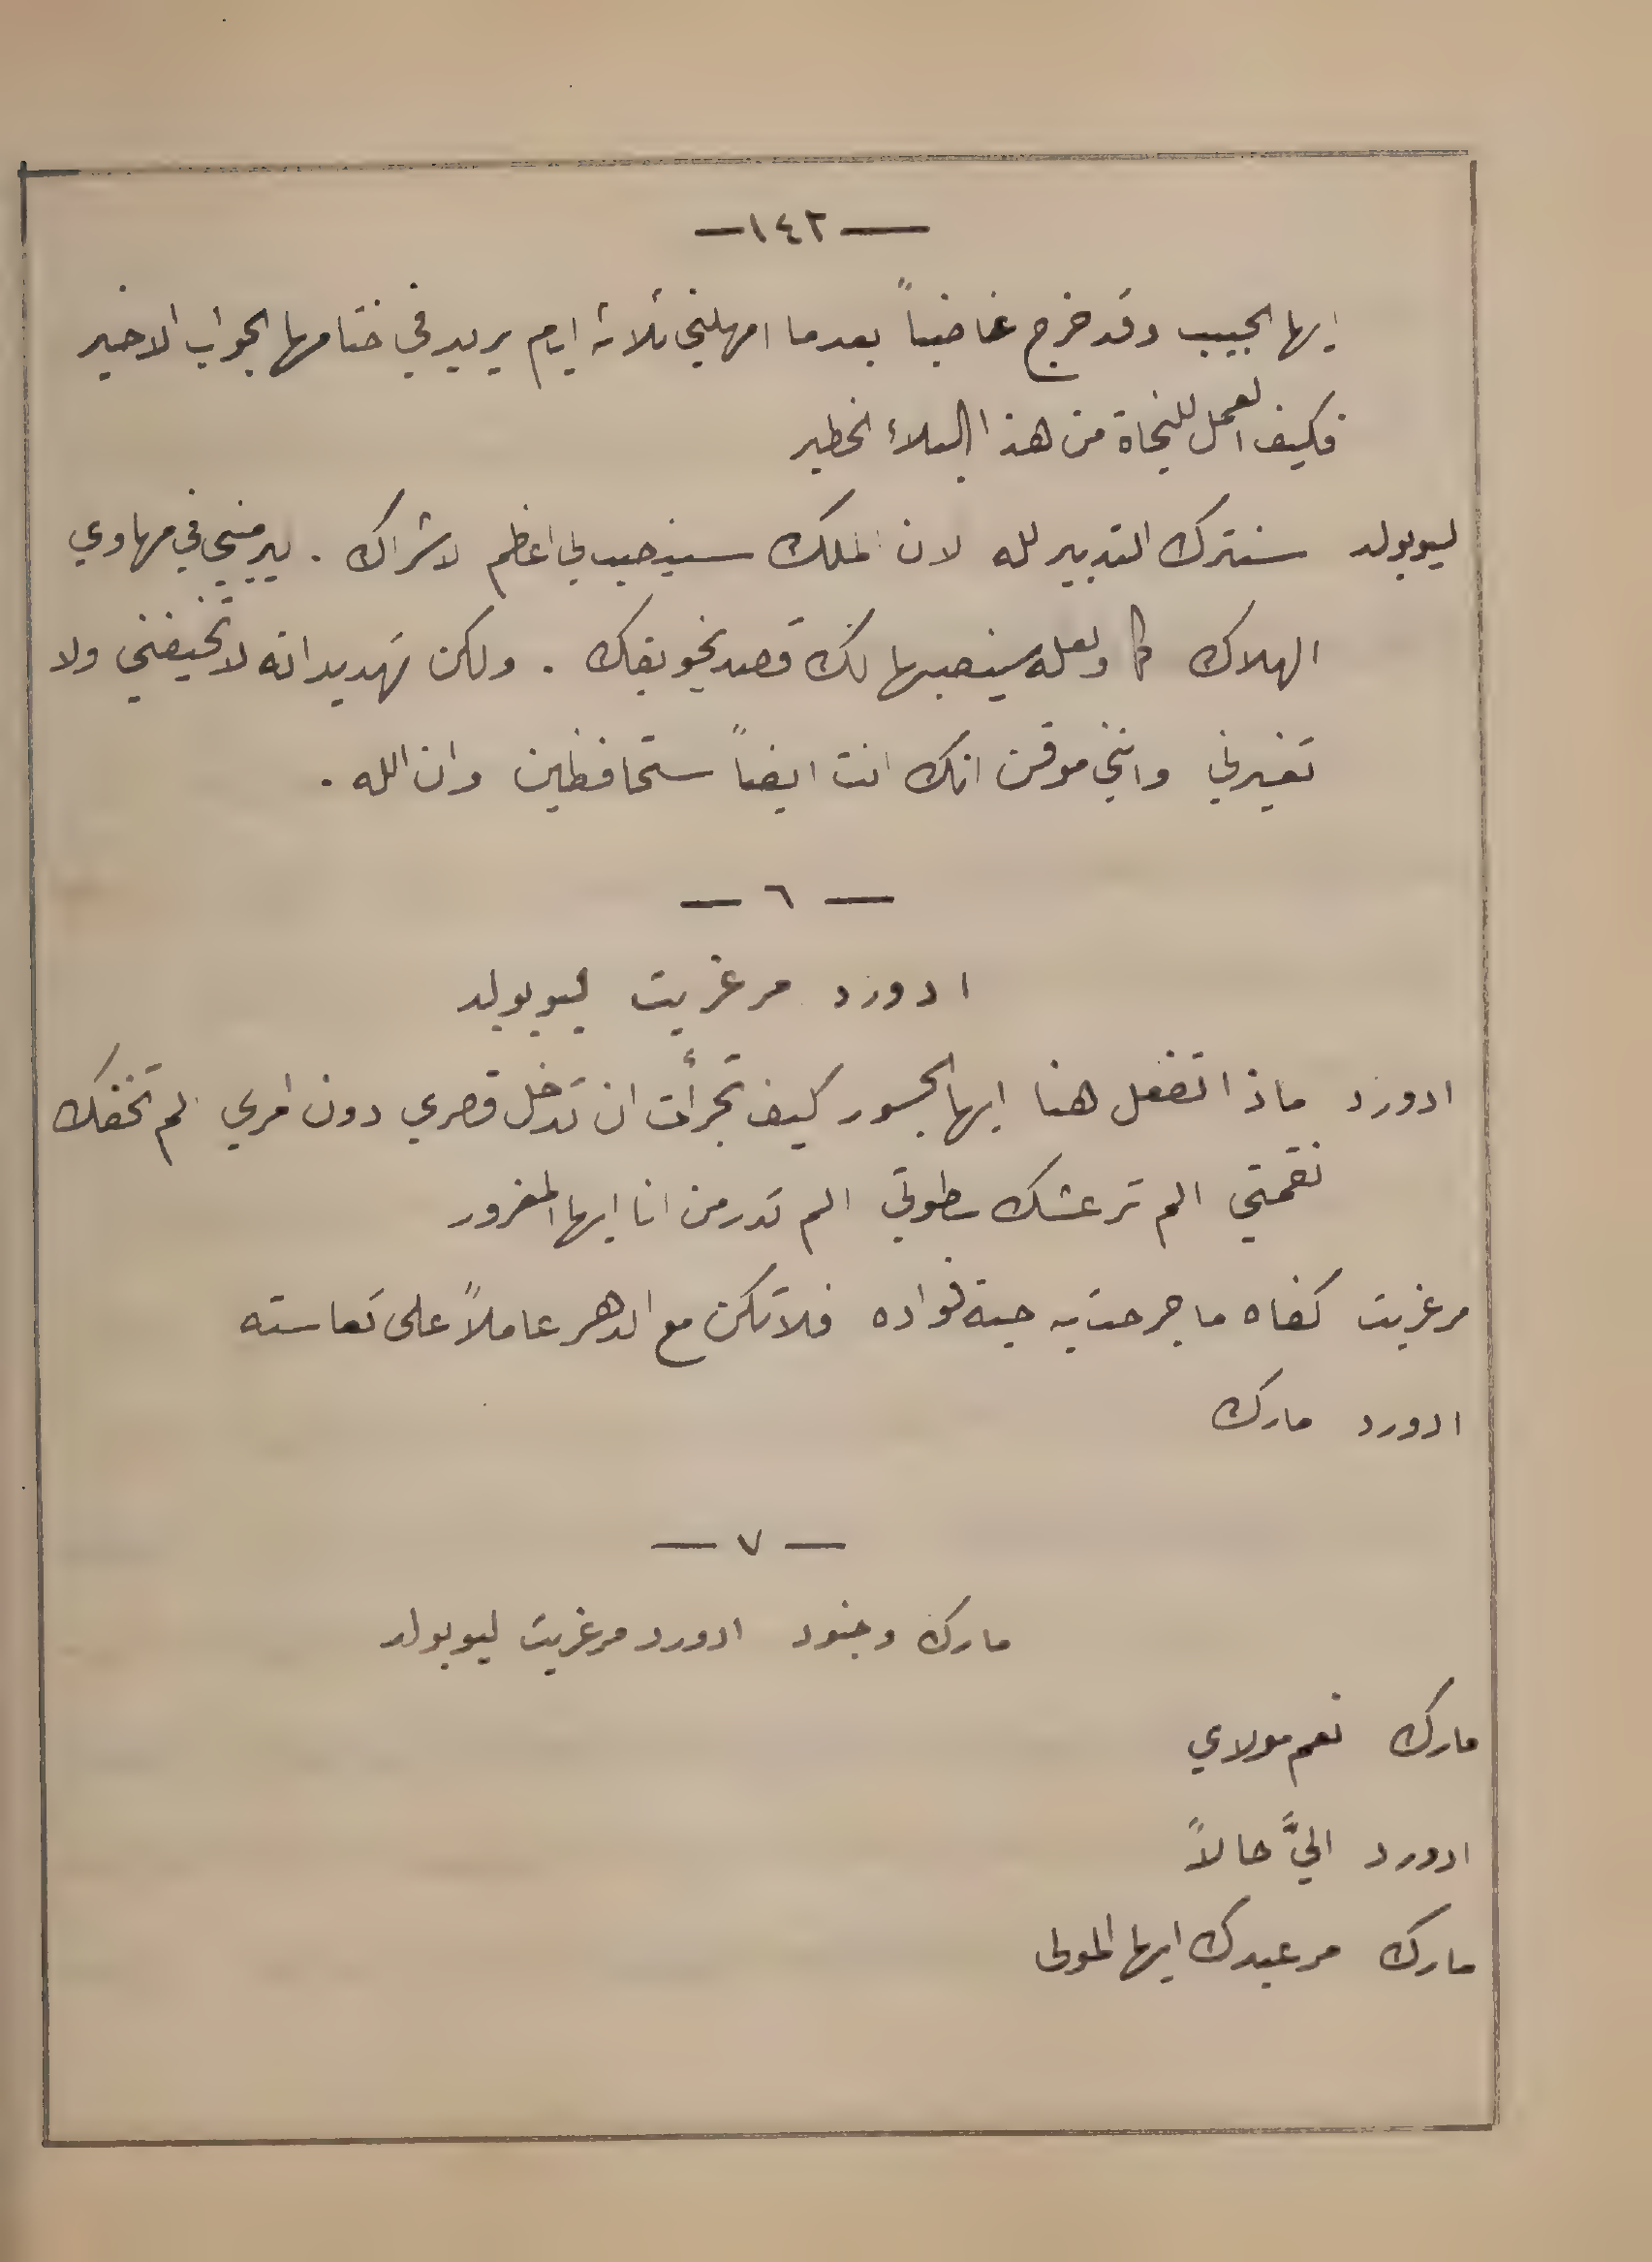 —١٤٢—
ايها الحبيب وقد خرج غاضباً بعدما امهلني ثلاثة ايام يريد في ختامها الجواب الاخير
فكيف العمل للنجاة من هذا البلاء الخطير
ليوبولد سنترك التدبير لله لان الملك سينصب لي اعظم الاشراك . ليرميني في مهاوي
الهلاك كما ولعله سينصبها لك قصد تخويفك . ولكن تهديداته لا تخيفني ولا
تغيرني وانني موقن انك انت ايضاً ستحافظين وان الله .
— ٦ —
ادورد مرغريت ليوبولد
ادورد ماذا تفعل هنا ايها الجسور كيف تجرأت ان تدخل قصري دون امري الم تخفك
نقمتي الم ترعشك سطوتي الم تدر من انا ايها المغرور
مرغريت كفاه ما جرحت به حبة فواده فلا تكن مع الدهر عاملاً على تعاسته
ادورد مارك
— ٧ —
مارك وجنود ادورد مرغريت ليوبولد
مارك نعم مولاي
ادورد اليَّ حالاً
مارك مر عبدك ايها المولى